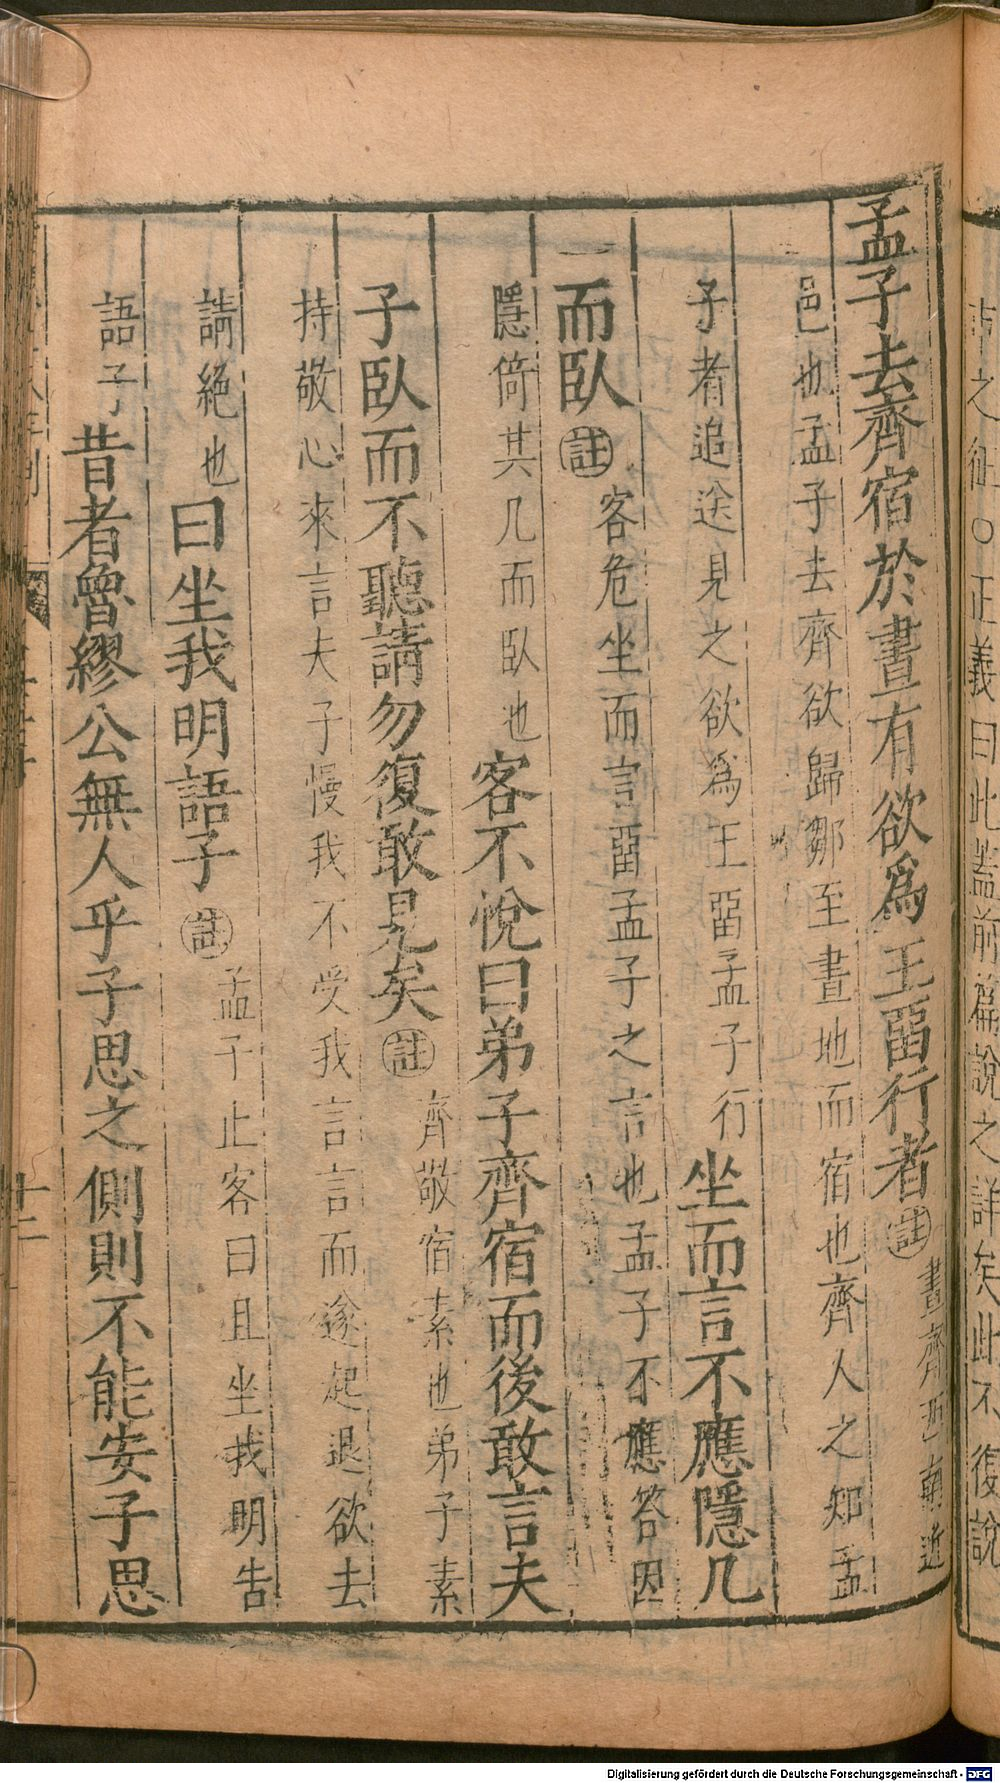 市之征〇正義曰此蓋前篇說之詳矣此不復說
孟子去齊宿於晝有欲爲王畱行者註晝齊西南近
邑也孟子去齊欲歸鄒至晝地而宿也齊人之知孟
子者追送見之欲爲王畱孟子行坐而言不應隱几
而臥註客危坐而言畱孟子之言也孟子不應答因
隱倚其几而臥也客不悅曰弟子齊宿而後敢言夫
子臥而不聽請勿復敢見矣註齊敬宿素也弟子素
持敬心來言夫子慢我不受我言言而遂起退欲去
請絕也曰坐我明語子註孟子止客曰且坐我明告
語子昔者魯繆公無人乎子思之側則不能安子思
十二
Digitalisierung gefördert durch die Deutsche Forschungsgemeinschaft - DFG